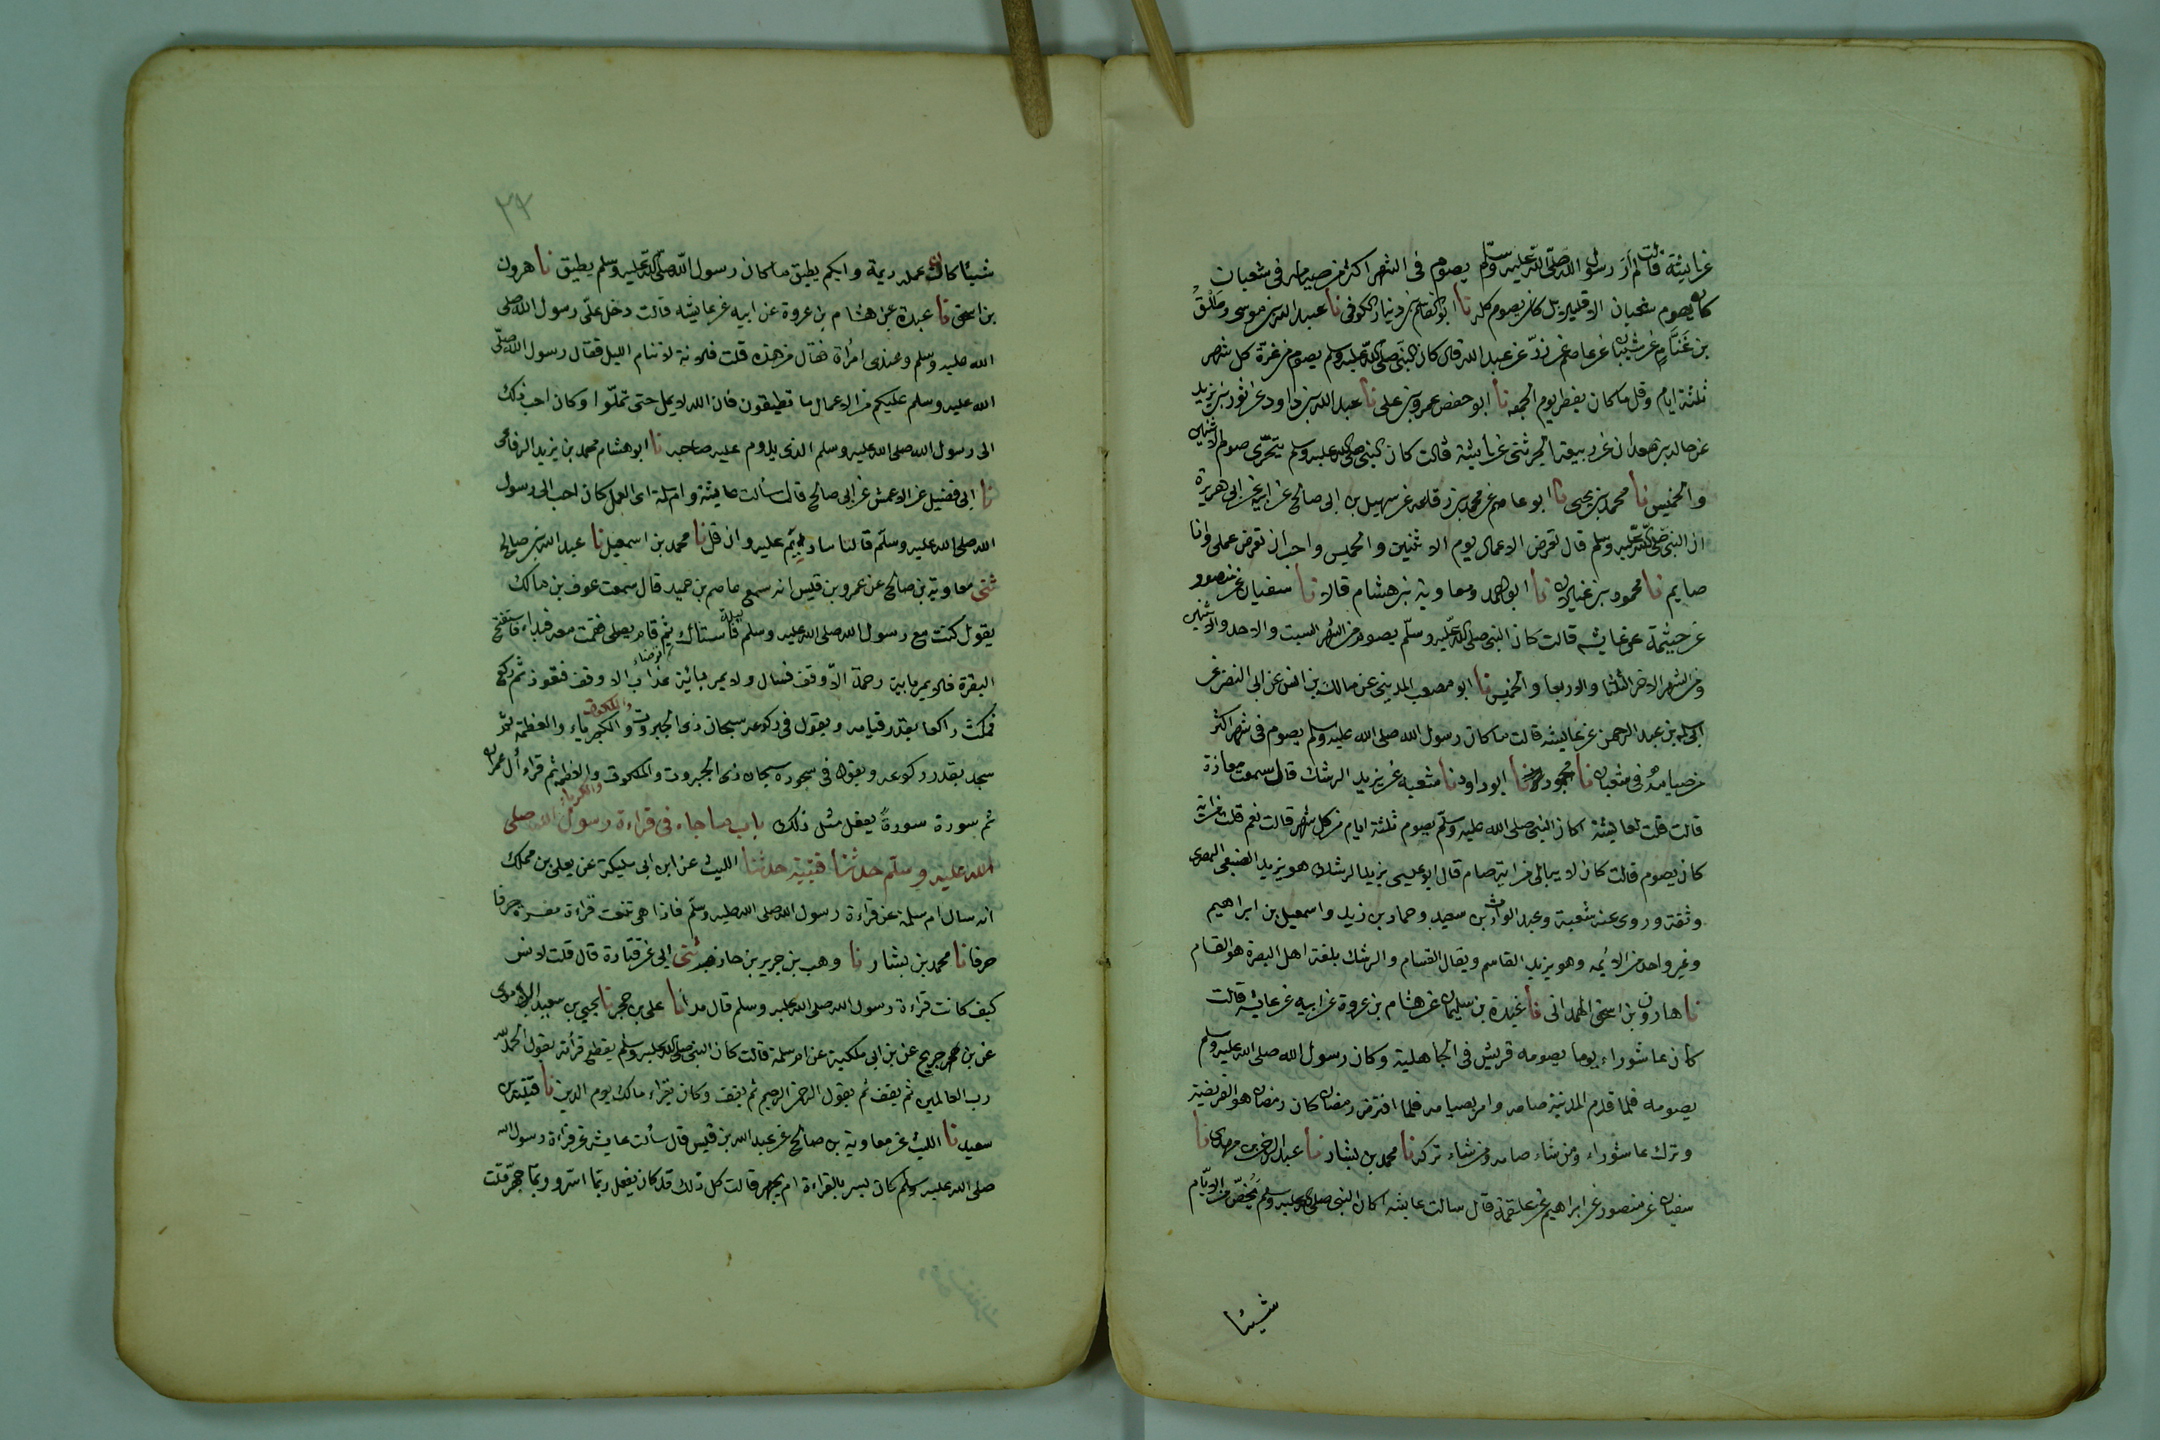 عن عايشة قالت لم ار رسول الله صلى الله عليه وسلم يصوم فى الشهر اكثر من صيامه فى شعبان
كان يصوم شعبان الا قليلا بل كان يصوم كله نا ابو القاسم بن دينار الكوفى نا عبيد الله بن موسى وطلق
بن غنام عن شيبان عن عاصم عن زر عن عبد الله قال كان النبى صلى الله عليه وسلم يصوم من غرة كل شهر
ثلثة ايام وقل ما كان يفطر يوم الجمعه نا ابو حفص عمرو بن على نا عبد الله بن داود عن ثور بن يزيد
عن خالد بن معدان عن ربيعة الجرشى عن عايشة قالت كان النبى صلى الله عليه وسلم يتحرى صوم الاثنين
والخميس نا محمد بن يحيى نا ابو عاصم عن محمد بن رفاعه عن سهيل بن ابى صالح عن ابيه عن ابى هريرة
ان النبى صلى الله عليه وسلم قال تعرض الاعمال يوم الاثنين والخميس واحب ان تعرض عملى وانا
صايم نا محمود بن غيلان نا ابو احمد ومعاوية بن هشام قالا نا سفيان عن منصور
عن خيثمة عن عايشه قالت كان النبى صلى الله عليه وسلم يصوم من الشهر السبت والاحد والاثنين
ومن الشهر الاخر الثلثا والاربعا والخميس نا ابو مصعب المدينى عن مالك بن انس عن ابى النضر عن
ابى سلمه بن عبد الرحمن عن عايشه قالت ما كان رسول الله صلى الله عليه وسلم يصوم فى شهر اكثر
من صيامه فى شعبان نا محمود نا ابو داود نا شعبه عن يزيد الرشك قال سمعت معاذة
قالت قلت لعايشة اكان النبى صلى الله عليه وسلم يصوم ثلثة ايام من كل شهر قالت نعم قلت من ايه
كان يصوم قالت كان لا يبالى من ايه صام قال ابو عيسى يزيد الرشك هو يزيد الضبعى البصرى
وثقة وروى عنه شعبة وعبد الوارث بن سعيد وحماد بن زيد واسمعيل بن ابراهيم
وغير واحد من الايمه وهو يزيد القاسم ويقال القسام والرشك بلغة اهل البصرة هو القسام
نا هارون بن اسحق الهمدانى نا عبدة بن سليمان عن هشام بن عروة عن ابيه عن عايشه قالت
كان عاشوراء يوما يصومه قريش فى الجاهلية وكان رسول الله صلى الله عليه وسلم
يصومه فلما قدم المدنية صامه وامر بصيامه فلما افترض رمضان كان رمضان هو الفريضية
وترك عاشوراء فمن شاء صامه ومن شاء تركه نا محمد بن بشار نا عبد الرحمن بن مهدى نا
سفيان عن منصور عن ابراهيم عن علقمة قال سالت عايشه اكان النبى صلى الله عليه وسلم يخص من الايام
شيئا
شيئا كان عمله ديمة وايكم يطيق ما كان رسول الله صلى الله عليه وسلم يطيق نا هرون
بن اسحق نا عبدة عن هشام بن عروة عن ابيه عن عايشه قالت دخل على رسول الله صلى
الله عليه وسلم وعندى امراة فقال من هذه قلت فلانة لا تنام الليل فقال رسول الله صلى
الله عليه وسلم عليكم من الاعمال ما تطيقون فان الله لا يمل حتى تملوا وكان احب ذلك
الى رسول الله صلى الله عليه وسلم الذى يدوم عليه صاحبه نا ابو هشام محمد بن يزيد الرفاعى
نا ابى فضيل عن الاعمش عن ابى صالح قال سألت عايشة وام سلمة اى العمل كان احب الى رسول
الله صلى الله عليه وسلم قالتا ما ديم عليه وان قل نا محمد بن اسمعيل نا عبد الله بن صالح
ثنى معاوية بن صالح عن عمرو بن قيس انه سمع عاصم بن حميد قال سمعت عوف بن مالك
يقول كنت مع رسول الله صلى الله عليه وسلم ليلة فاستاك ثم توضاء ثم قام يصلى فقمت معه فبداء فاستفتح
البقرة فلا يمر باية رحمة الا وقف فسال ولا يمر باية عذاب الا وقف فتعوذ ثم ركع
فمكث راكعا بقدر قيامه ويقول فى ركوعه سبحان ذى الجبروت والملكوت والكبرياء والعظمة ثم
سجد بقدر ركوعه ويقول فى سجوده سبحان ذى الجبروت والملكوت والكبرياء والعظمه ثم قراء أل عمران
ثم سورة سورة يفعل مثل ذلك باب ما جاء فى قراءة رسول الله صلى
الله عليه وسلم حدثنا قتيبة حدثنا الليث عن ابن ابى مليكة عن يعلى بن مملك
انه سال ام سلمة عن قراءة رسول الله صلى الله عليه وسلم فاذا هى تنعت قراءة مفسرة حرفا
حرفا نا محمد بن بشار نا وهب بن جرير بن حازم ثنى ابى عن قتادة قال قلت لانس
كيف كانت قراءة رسول الله صلى الله عليه وسلم قال مدا نا على بن حجر نا يحيى بن سعيد الاموى
عن بن جريج عن بن ابى ملكية عن ام سلمة قالت كان النبى صلى الله عليه وسلم يقطع قرأته يقول الحمد لله
رب العالمين ثم يقف ثم يقول الرحمن الرحيم ثم يقف وكان يقراء مالك يوم الدين نا قتيبة بن
سعيد نا الليث عن معاوية بن صالح عن عبد الله بن قيس قال سألت عايشه عن قراءة رسول الله
صلى الله عليه وسلم كان يسر بالقراءة ام يجهر قالت كل ذلك قد كان يفعل ربما اسر وربما جهر قلت